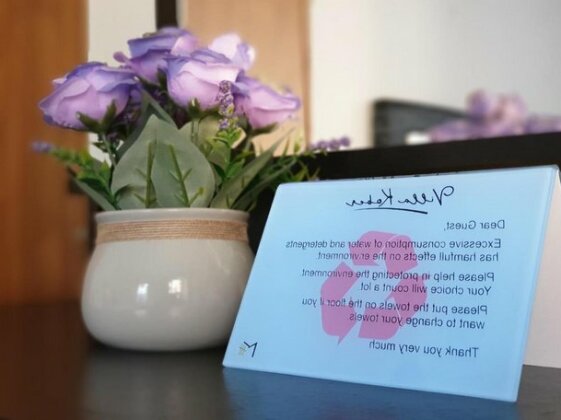 Villa Kaber
Dear Guest,
Excessive consumption of water and detergents
has harmfull effects on the environment.
Please help in protecting the environment
Your choice will count a lot.
Please put the towels on the floor if you
want to change your towels
Thank you very much
M